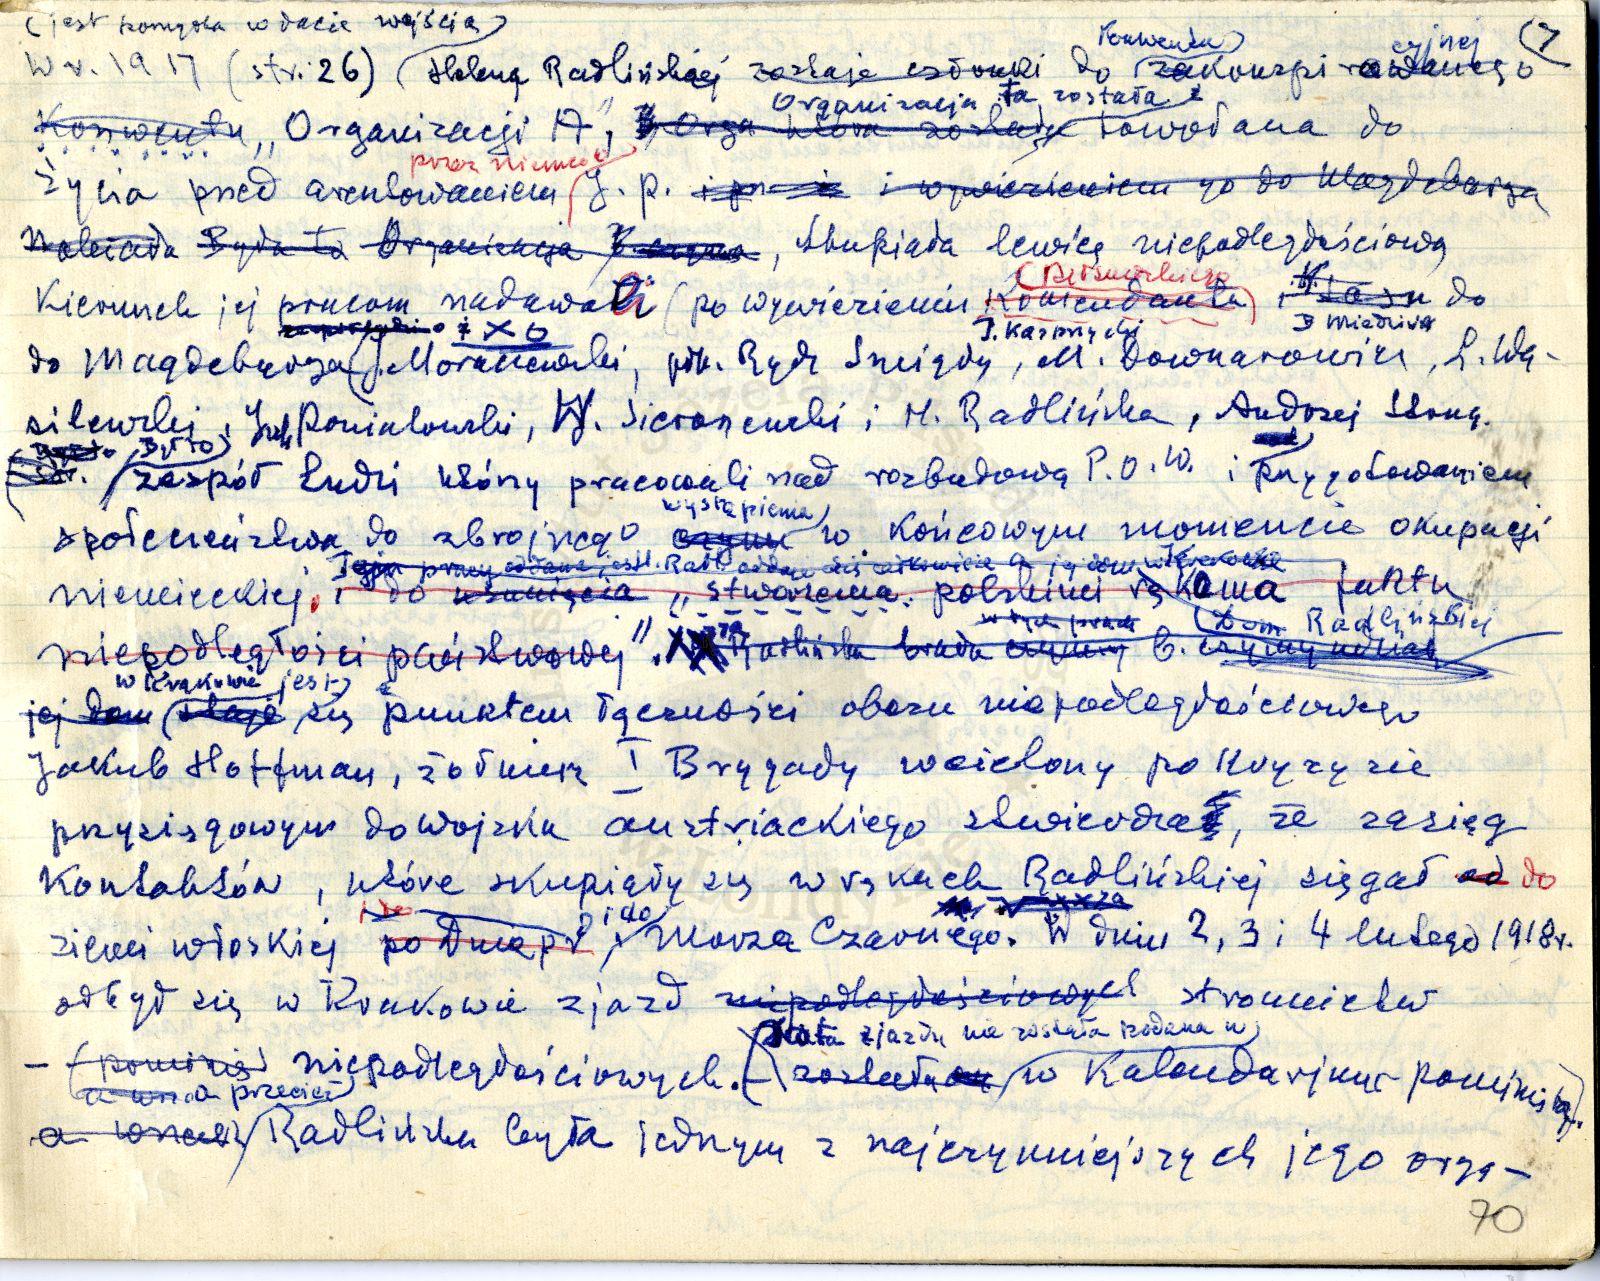 (jest pomyłka w dacie wejścia)
W r. 1917 (str. 26) Helena Radlińskiej zostaje członki do Konwentu zakonspirowanego cyjnej (7
Organizacja ta została
Konwentu „Organizacji A”, powołana do
przez Niemców
życia przed aresztowaniem J. P. i wywiezieniem go do Magdeburga
, skupiała lewicę niepodległościową
(Piłsudskiego)
Kierunek jej pracom nadawali (po wywiezieniu Komendanta) i do
J. Kasprzycki B Miedziński
do Magdeburga J. Moraczewski, płk. Rydz Śmigły, M. Downarowicz, L. Wa-
silewski, Jul. Poniatowski, W. Sieroszewski i H. Radlińska, Andrzej Strug.
Był to
zespół ludzi którzy pracowali nad rozbudową P.O.W. i przygotowaniem
wystąpienia
społeczeństwa do zbrojnego czynu w końcowym momencie okupacji
niemieckiej. i do „stworzenia polskimi rękoma faktu
w tych pracach Dom Radlińskiej
niepodległości państwowej”. Radlińska brała b. czynny udział
w Krakowie jest
jej dom staje się punktem łączności obozu niepodległościowego
Jakub Hoffman, żołnierz I Brygady wcielony po kryzysie
przysięgowym do wojska austriackiego stwierdza, że zasięg
kontaktów, które skupiały się w rękach Radlińskiej sięgał od do
i do
ziemi włoskiej po Dniepr i Morza Czarnego. W dniu 2, 3 i 4 lutego 1918 r.
odbył się w Krakowie zjazd niepodległościowych stronnictw
Data zjazdu nie została podana w
- niepodległościowych. została w Kalendarjum - pominięta.
a przecież
Radlińska była jednym z najczynniejszych jego orga-
70